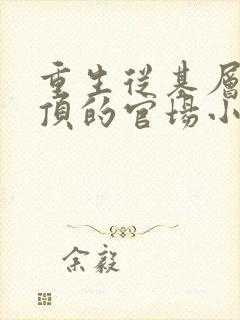 重生從基層
頂的官場小
余毅